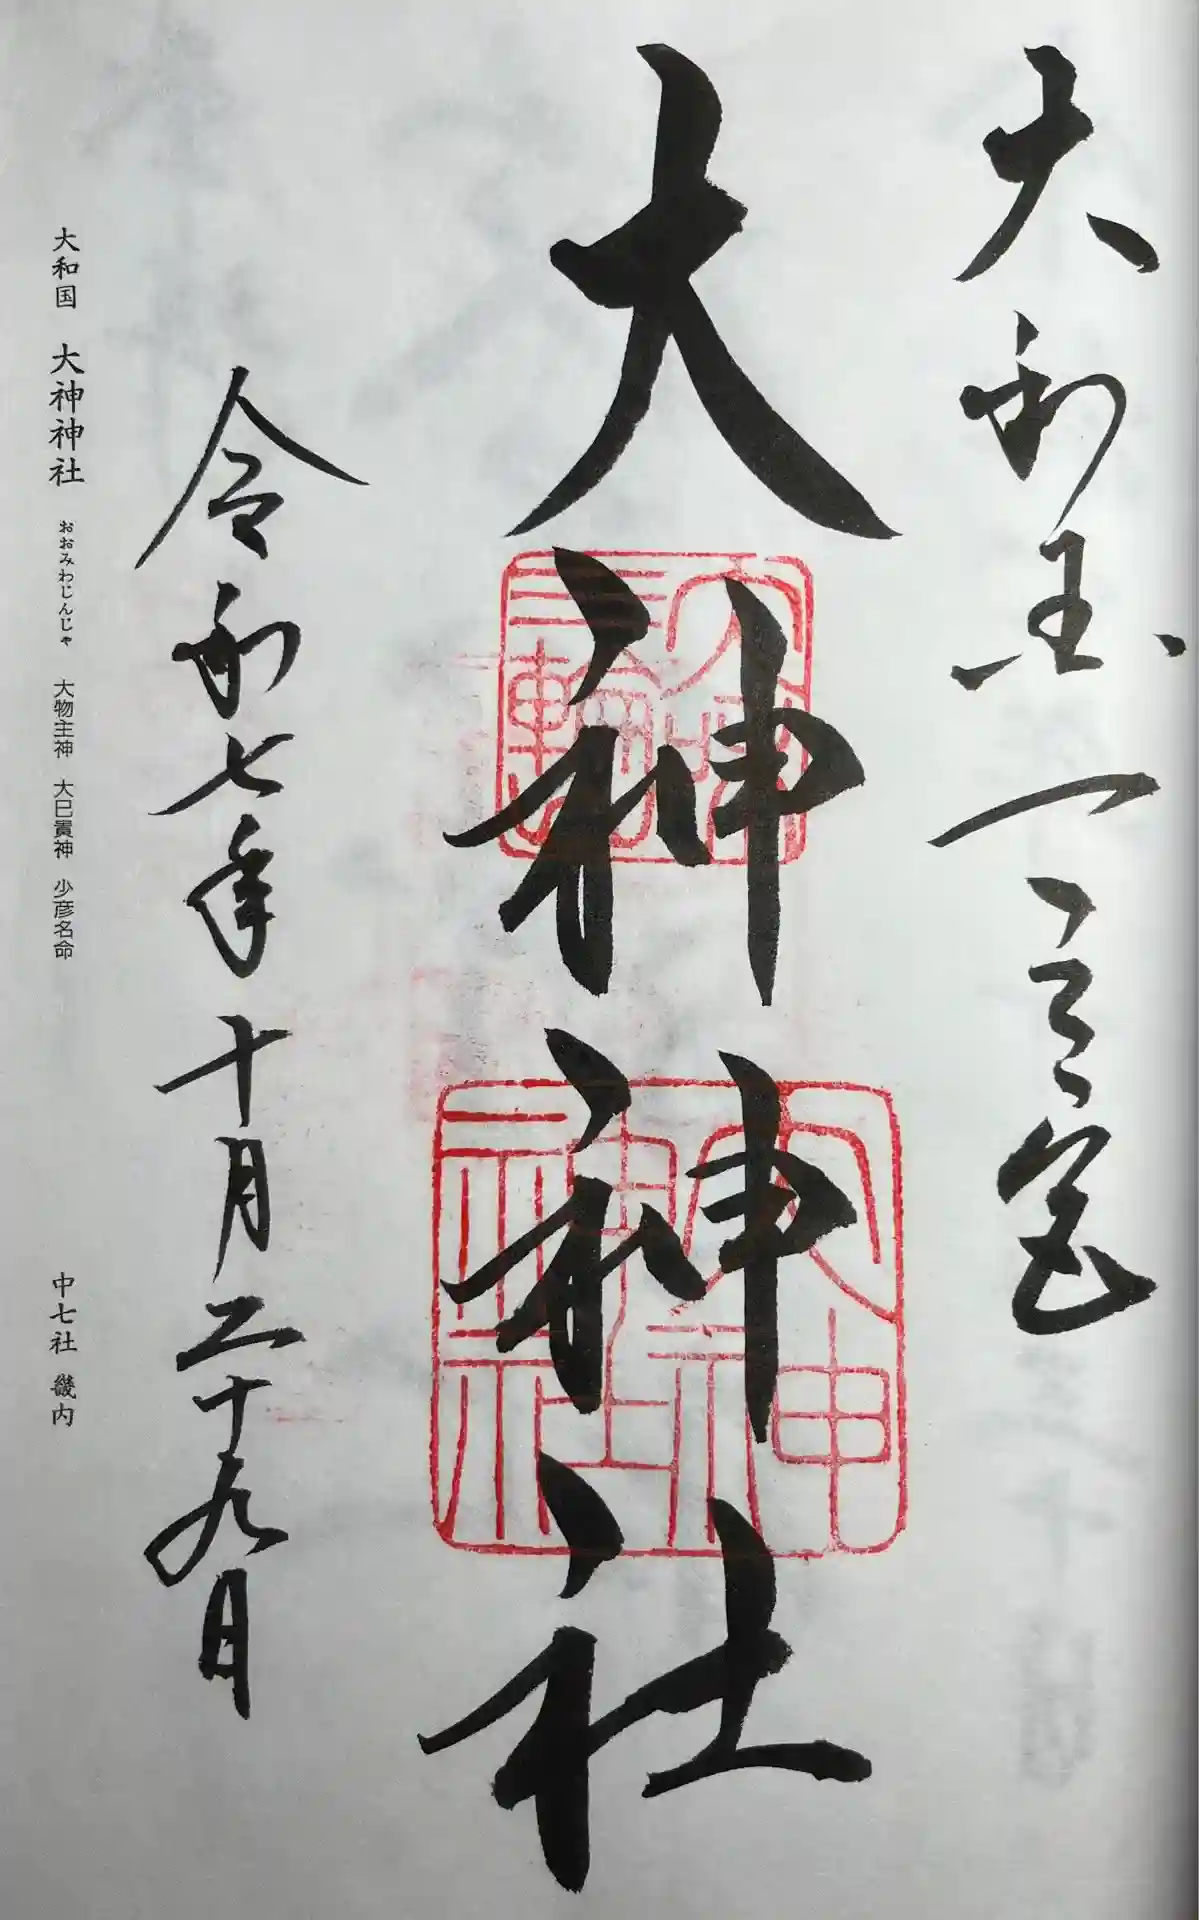 大和国一之宮
大神神社
大神神社
令和七年十月二十九日
大和国 大神神社 おおみわじんじゃ 大物主神 大巳貴神 少彦名命 中七社 畿内